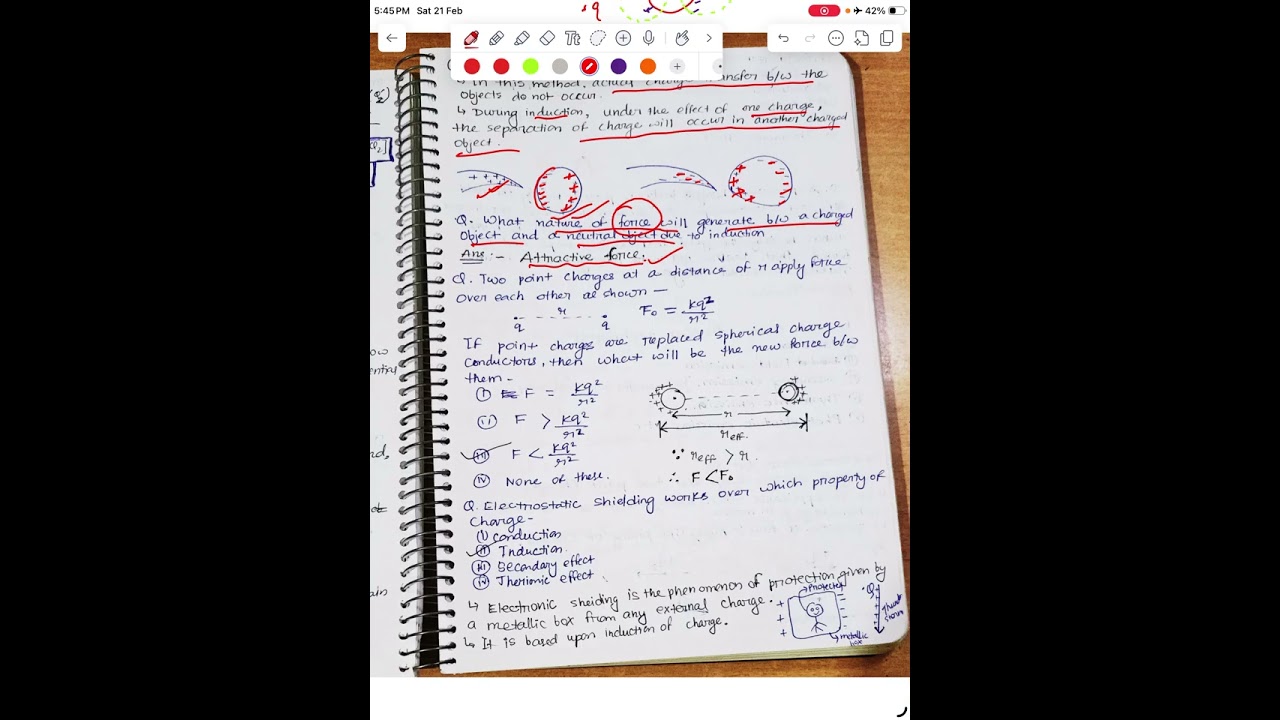 5:45 PM Sat 21 Feb
42%
q
↳ In this method, actual charge transfer b/w the
objects do not occur.
↳ During induction, under the effect of one charge,
the separation of charge will occur in another charged
object.
Q. What nature of force will generate b/w a charged
object and a neutral object due to induction
Ans :- Attractive force.
Q. Two point charges at a distance of r apply force
over each other as shown —
r
q q
F₀ = kq²/r²
If point charges are replaced spherical charge
conductors, then what will be the new force b/w
them -
(i) F = kq²/r²
(ii) F > kq²/r²
(iii) F < kq²/r²
(iv) None of these.
r
r eff.
∵ r eff > r.
∴ F < F₀
Q. Electrostatic shielding works over which property of
charge -
(i) conduction
(ii) Induction
(iii) Secondary effect
(iv) Thermic effect
↳ Electronic sheiding is the phenomenon of protection given by
a metallic box from any external charge.
↳ It is based upon induction of charge.
protected
metallic
box